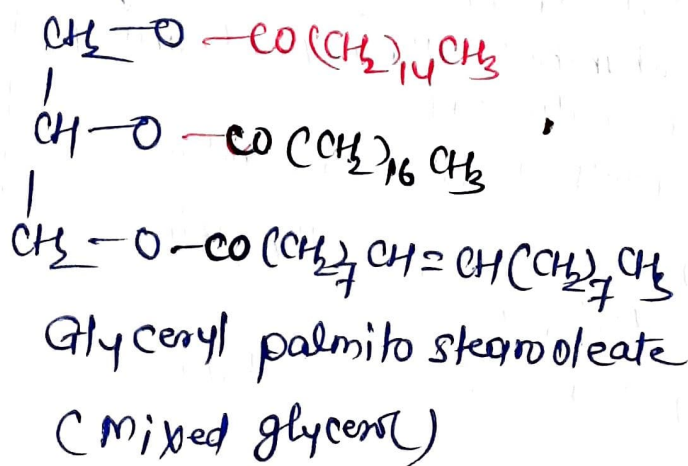 CH₂—O—CO(CH₂)₁₄CH₃
CH—O—CO(CH₂)₁₆CH₃
CH₂—O—CO(CH₂)₇CH=CH(CH₂)₇CH₃
Glyceryl palmito stearooleate
(Mixed glycerol)